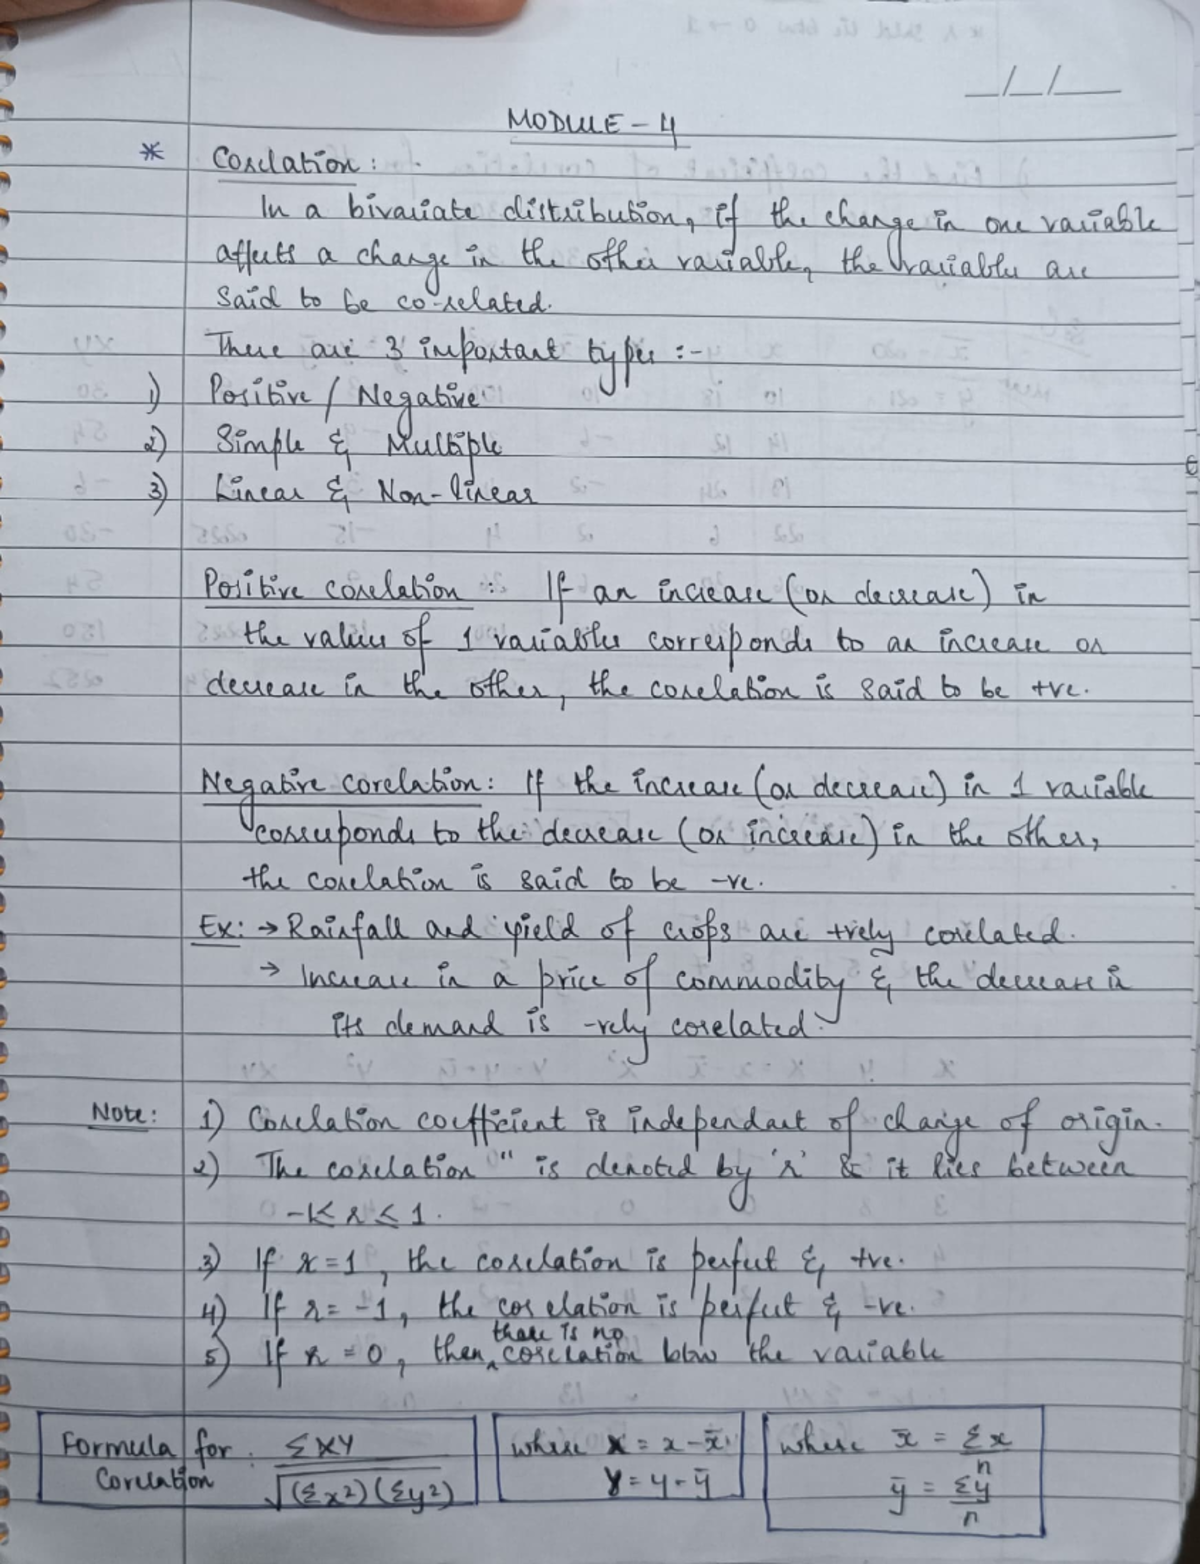 __/__/____
MODULE - 4
* Corelation :
In a bivariate distribution, if the change in one variable
affects a change in the other variable, the variables are
said to be co-related.
There are 3 important types :-
1) Positive / Negative
2) Simple & Multiple
3) Linear & Non-linear
Positive corelation : If an increase (or decrease) in
the values of 1 variables corresponds to an increase or
decrease in the other, the corelation is said to be +ve.
Negative corelation : If the increase (or decrease) in 1 variable
corresponds to the decrease (or increase) in the other,
the corelation is said to be -ve.
Ex: → Rainfall and yield of crops are +vely corelated.
→ Increase in a price of commodity & the decrease in
its demand is -vely corelated.
Note: 1) Corelation coefficient is independant of change of origin.
2) The corelation " is denoted by 'r' & it lies between
-1< r ≤ 1.
3) If r = 1, the corelation is perfect & +ve.
4) If r = -1, the corelation is perfect & -ve.
5) If r = 0, then there is no corelation btw the variable
Formula for Corelation : ΣXY / √(Σx²)(Σy²)
where X = x - x̄
Y = y - ȳ
where x̄ = Σx / n
ȳ = Σy / n